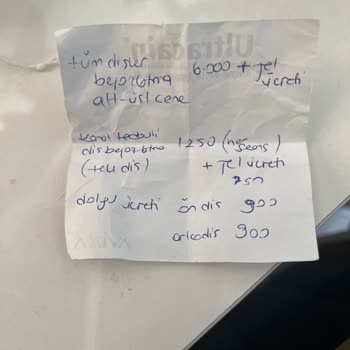 Ultracain
tüm dişler
beyazlatma 6.000 + Jel
alt-üst çene ücreti
Kanal tedavili
diş beyazlatma 1250 (her seans)
(tek diş) + Jel ücreti
750
dolgu ücreti ön diş 900
arka diş 900